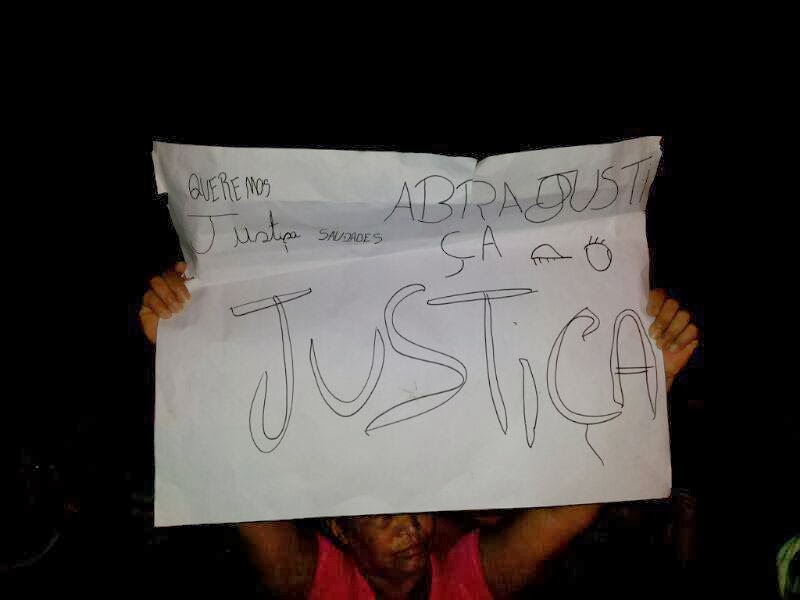 QUEREMOS
Justiça SAUDADES
ABRA JUSTI
ÇA
JUSTiÇA